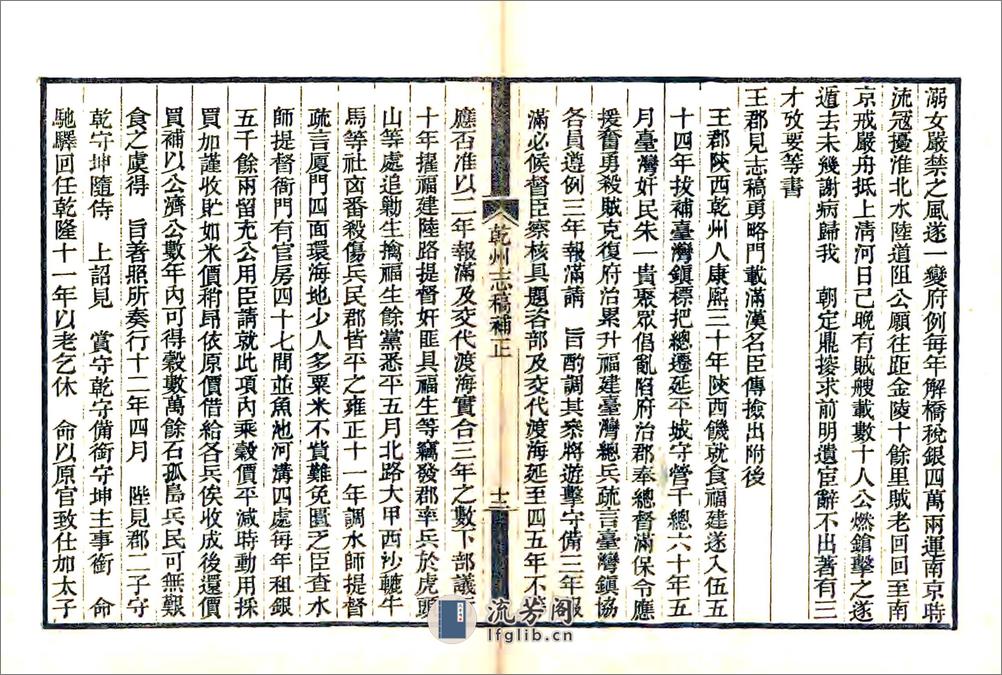 溺女嚴禁之風遂一變府例每年解橋稅銀四萬兩運南京時
流冦擾淮北水陸道阻公願往距金陵十餘里賊老回回至南
京戒嚴舟抵上清河日己晚有賊艘載數十人公燃鎗擊之遂
遁去未幾謝病歸我 朝定鼎搜求前明遺宦辭不出著有三
才攷要等書
王郡見志稿勇略門載滿漢名臣傳撿出附後
王郡陝西乾州人康熙三十年陝西饑就食福建遂入伍五
十四年拔補臺灣鎭標把總遷延平城守營千總六十年五
月臺灣奸民朱一貴聚眾倡亂陷府治郡奉總督滿保令應
援奮勇殺賊克復府治累升福建臺灣總兵疏言臺灣鎭協
各員遵例三年報滿請 旨酌調其叅將遊擊守備三年報
滿必候督臣察核具題咨部及交代渡海延至四五年不
乾州志稿補正
十二
應否准以二年報滿及交代渡海實合三年之數下部議
十年擢福建陸路提督奸匪吳福生等竊發郡率兵於虎頭
山等處追勦生擒福生餘黨悉平五月北路大甲西沙轆牛
馬等社凶番殺傷兵民郡皆平之雍正十一年調水師提督
疏言厦門四面環海地少人多粟米不貲難免匱乏臣查水
師提督衙門有官房四十七間並魚池河溝四處每年租銀
五千餘兩留充公用臣請就此項內乘穀價平減時動用採
買加謹收貯如米價稍昂依原價借給各兵俟收成後還價
買補以公濟公數年內可得穀數萬餘石孤島兵民可無艱
食之虞得 旨著照所奏行十二年四月 陛見郡二子守
乾守坤隨侍 上詔見 賞守乾守備銜守坤主事銜 命
馳驛回任乾隆十一年以老乞休 命以原官致仕加太子
流芳閣
lfglib.cn